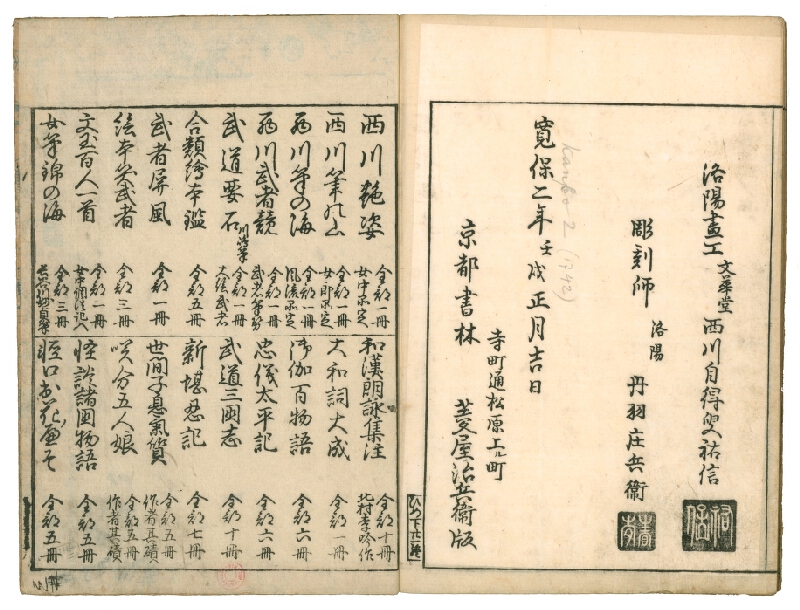 洛陽畫工 文華堂 西川自得叟祐信
祐信
彫刻師 洛陽 丹羽庄兵衞
寛保二年壬戌正月吉日
Kanpo 2 (1742)
京都書林 寺町通松原上ル町 菱屋治兵衞版
西川艶姿 全部一冊
西川筆の山 全部一冊
西川筆の海 全部一冊
西川武者競 全部一冊
武道要石 全部一冊
合類繪本鑑 全部五冊
武者屏風 全部一冊
繪本 武者 全部三冊
文玉百人一首 全部一冊
女筆錦の海 全部三冊
和漢朗詠集注 全部十冊 北村季吟作
大和詞大成 全部一冊
御伽百物語 全部六冊
忠儀太平記 全部六冊
武道三國志 全部十冊
新堪忍記 全部七冊
世間子息氣質 全部五冊 作者其磧
咲分五人娘 全部五冊 作者其磧
怪談諸国物語 全部五冊
全部五冊